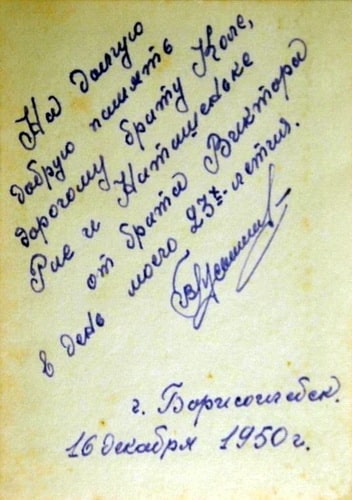 На долгую
добрую память
дорогому брату Коле,
Рае и Наташеньке
от брата Виктора
в день моего 23х-летия.
г. Борисоглебск.
16 декабря 1950 г.